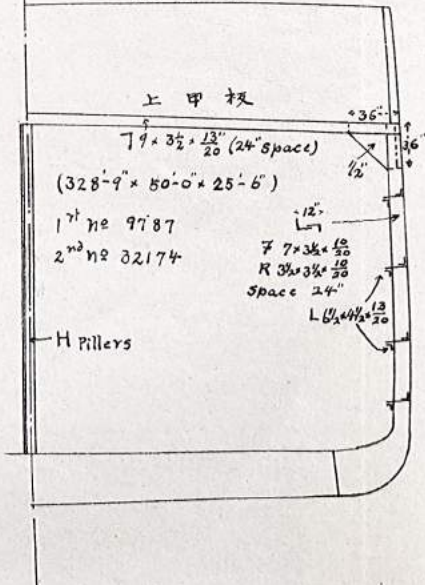 上甲板
36"
36"
7 9 × 3½ × 13/20 (24" space)
½"
(328'-9" × 50'-0" × 25'-6")
1st no 9787
12"
2nd no 32174
F 7 × 3½ × 10/20
R 3½ × 3½ × 10/20
space 24"
L 6½ × 4½ × 13/20
H Pillers